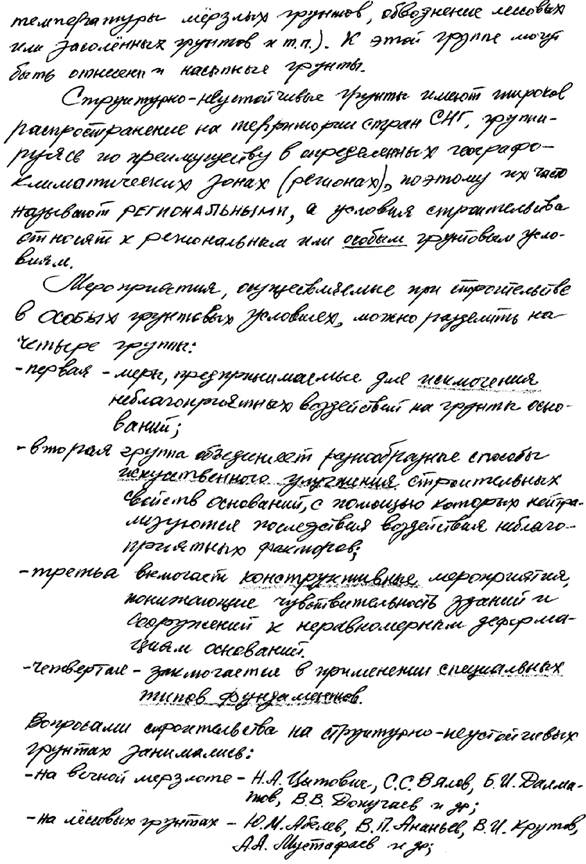 температуры мёрзлых грунтов, обводнение лёссовых
или засолённых грунтов и т.п.). К этой группе могут
быть отнесены и насыпные грунты.
Структурно-неустойчивые грунты имеют широкое
распространение на территории стран СНГ, группи-
руясь по преимуществу в определенных географо-
климатических зонах (регионах), поэтому их часто
называют РЕГИОНАЛЬНЫМИ, а условия строительства
относят к региональным или особым грунтовым усло-
виям.
Мероприятия, осуществляемые при строительстве
в особых грунтовых условиях, можно разделить на
четыре группы:
- первая - меры, предпринимаемые для исключения
неблагоприятных воздействий на грунты осно-
ваний;
- вторая группа объединяет разнообразные способы
искусственного улучшения строительных
свойств оснований, с помощью которых нейтра-
лизуются последствия воздействия неблаго-
приятных факторов;
- третья включает конструктивные мероприятия,
понижающие чувствительность зданий и
сооружений к неравномерным деформа-
циям оснований.
- четвертая - заключается в применении специальных
типов фундаментов.
Вопросами строительства на структурно-неустойчивых
грунтах занимались:
- на вечной мерзлоте - Н.А. Цытович, С.С. Вялов, Б.И. Далма-
тов, В.В. Докучаев и др;
- на лёссовых грунтах - Ю.М. Абелев, В.П. Ананьев, В.И. Крутов,
А.А. Мустафаев и др;